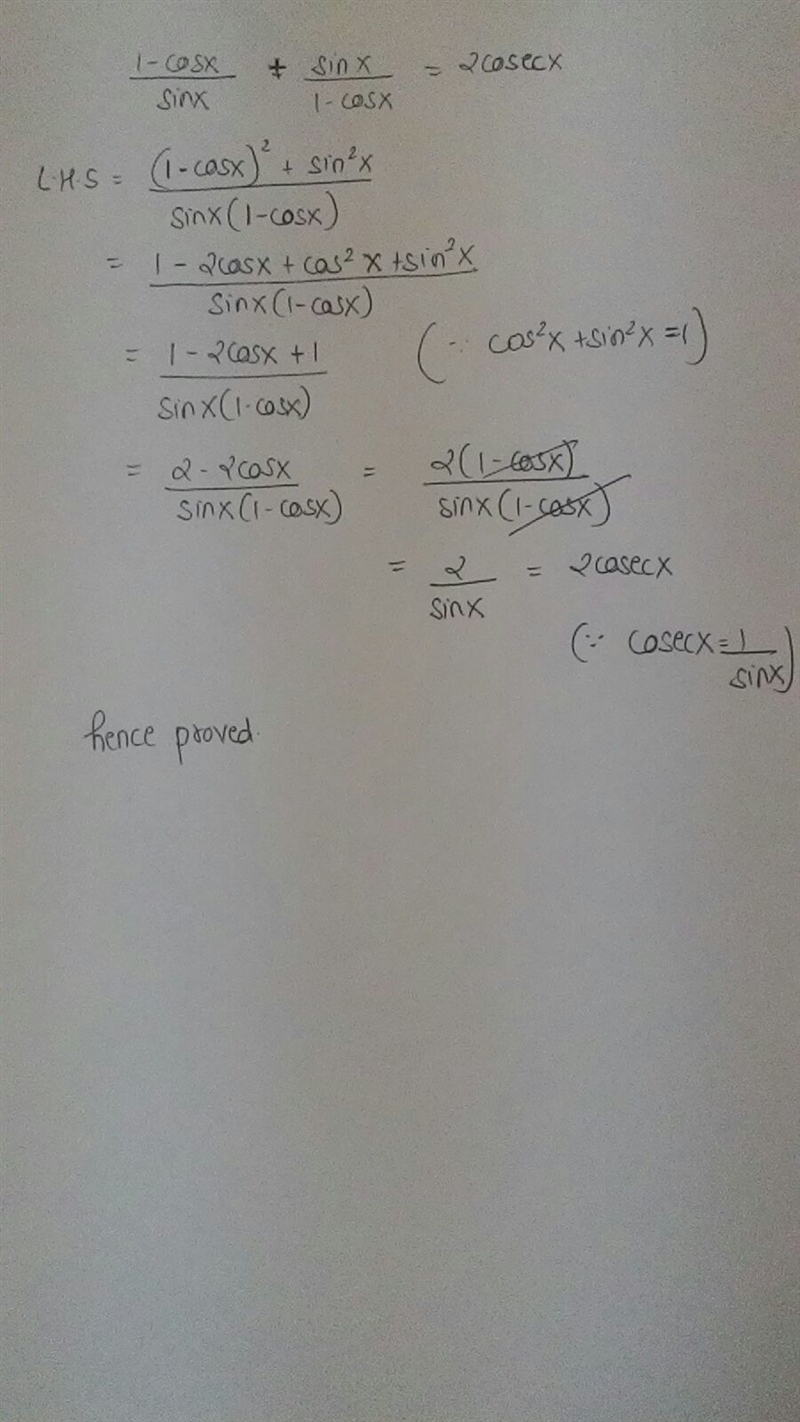 1-cosx/sinx + sinx/1-cosx = 2cosecx
L.H.S = (1-cosx)² + sin²x/sinx(1-cosx)
= 1 - 2cosx + cos²x + sin²x/sinx(1-cosx)
= 1 - 2cosx + 1/sinx(1-cosx) (∵ cos²x + sin²x = 1)
= 2 - 2cosx/sinx(1-cosx) = 2(1-cosx)/sinx(1-cosx)
= 2/sinx = 2cosecx
(∵ cosecx = 1/sinx)
hence proved.